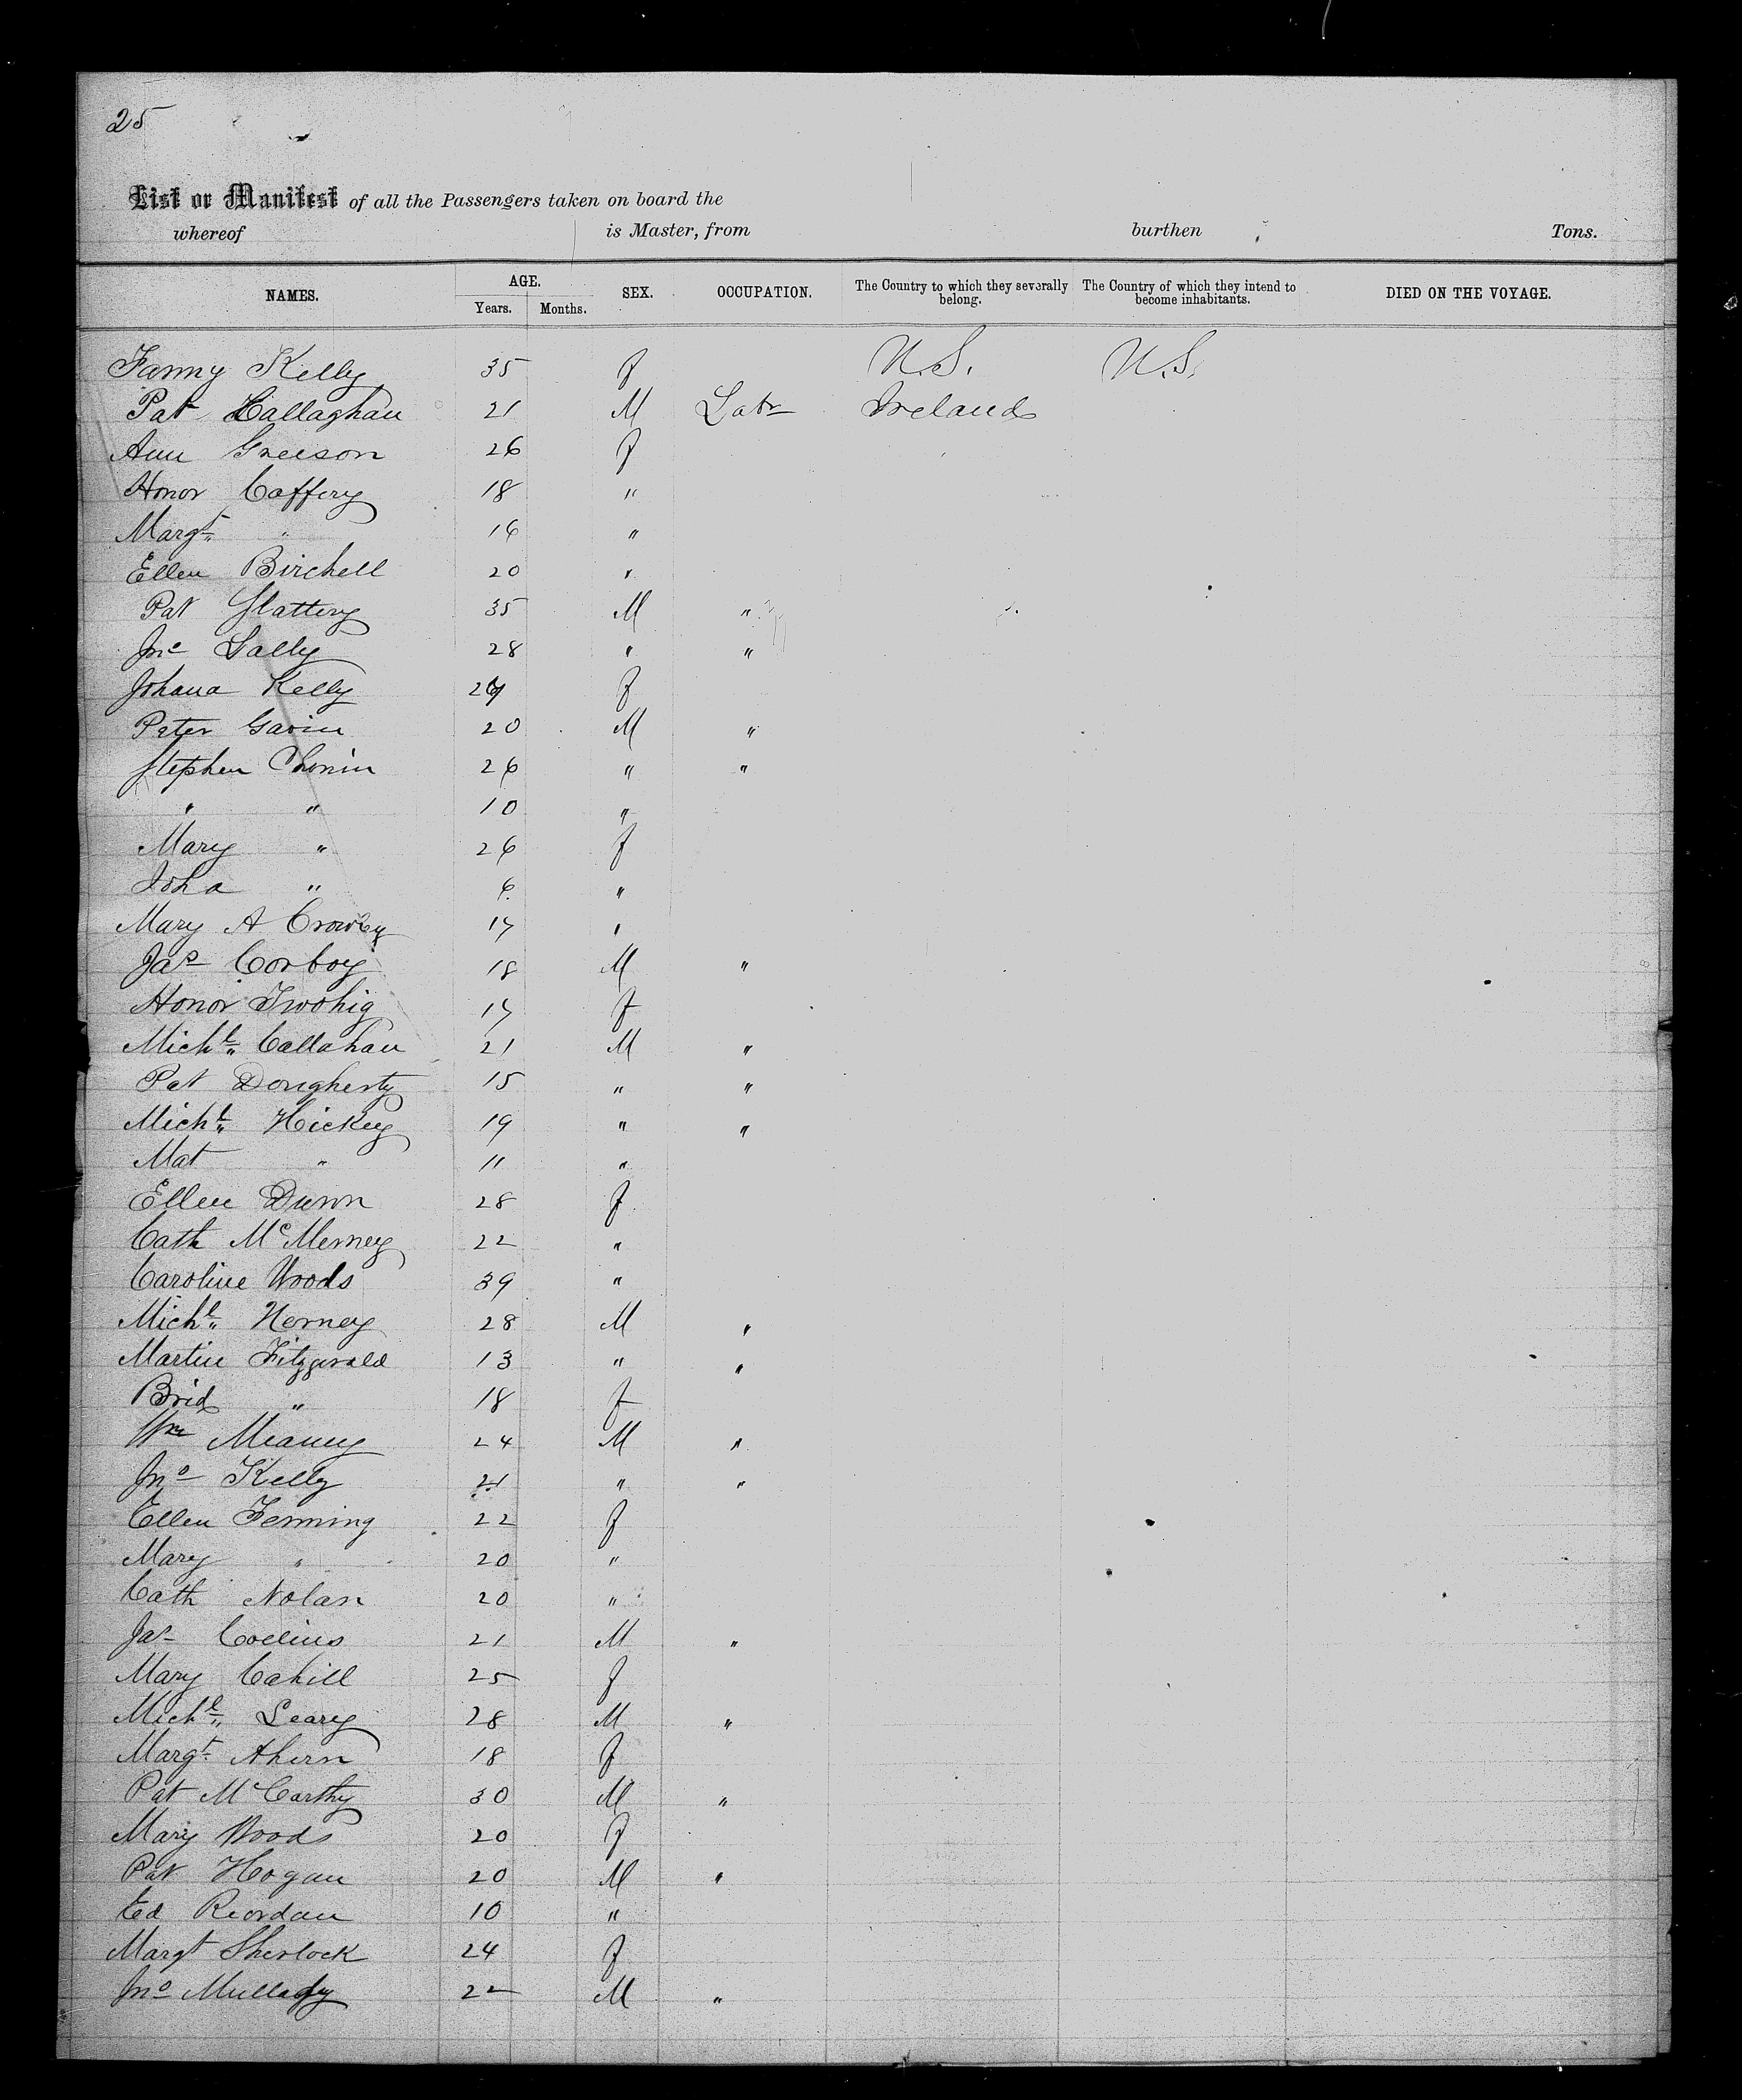 25
List or Manifest of all the Passengers taken on board the
whereof is Master, from burthen Tons.
NAMES. AGE. Years. Months. SEX. OCCUPATION. The Country to which they severally belong. The Country of which they intend to become inhabitants. DIED ON THE VOYAGE.
Fanny Kelly 35 f U.S. U.S.
Pat Callaghan 21 M Labr Ireland
Ann Greeson 26 f
Honor Caffery 18 "
Margt " 16 "
Ellen Birchell 20 "
Pat Slattery 35 M "
Jno Lally 28 " "
Johana Kelly f
Peter Gavin 20 M "
Stephen Chonin 26 " "
" " 10 "
Mary " 26 f
Joha " 6 "
Mary A Crowley 17 "
Jas Corboy 18 M "
Honor Twohig 17 f
Michl Callahan 21 M "
Pat Dougherty 15 " "
Michl Hickey 19 " "
Mat " 11 "
Ellen Dunn 28 f
Cath McMerney 22 "
Caroline Woods 39 "
Michl Nerney 28 M "
Martin Fitzgerald 13 " "
Brid " 18 f
Wm Meaney 24 M "
Jno Kelly 21 " "
Ellen Fenning 22 f
Mary " 20 "
Cath Nolan 20 "
Jas Collins 21 M "
Mary Cahill 25 f
Michl Leary 28 M "
Margt Ahern 18 f
Pat McCarthy 30 M "
Mary Woods 20 f
Pat Hogan 20 M "
Ed Reordan 10 "
Margt Sherlock 24 f
Jno Mullady 22 M "